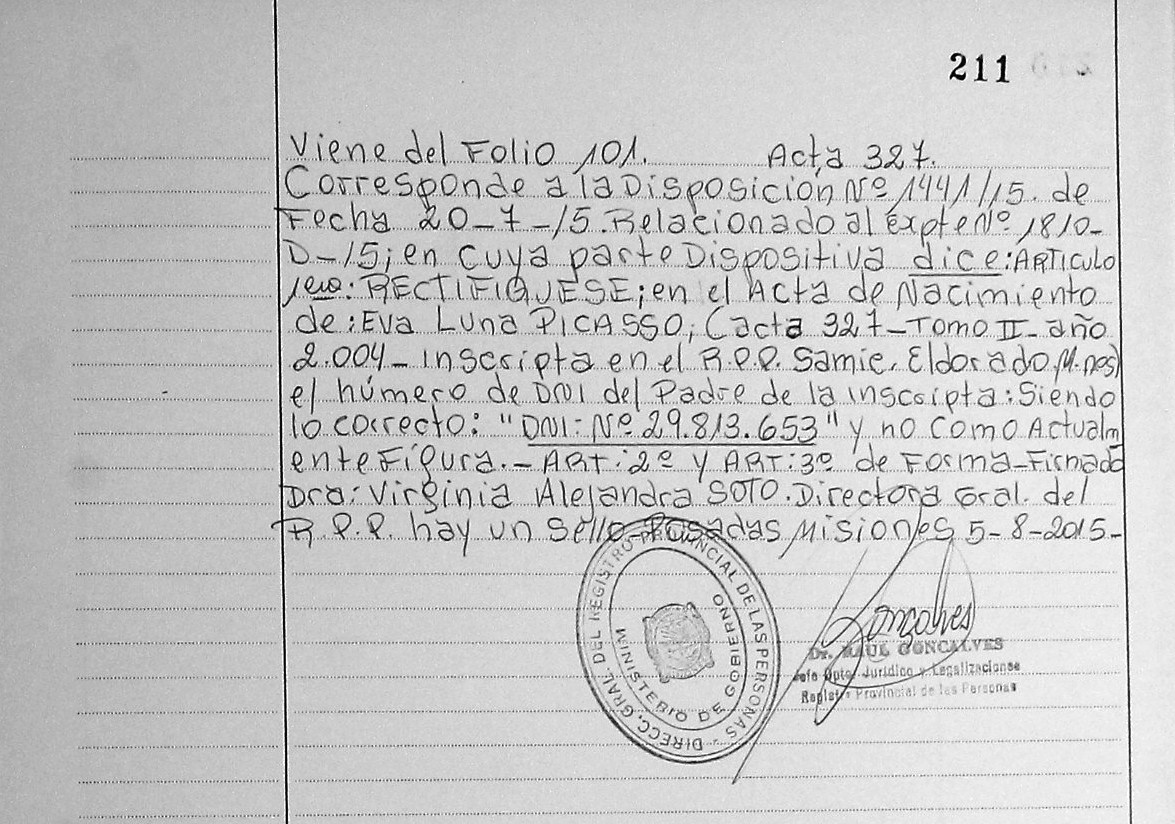 211
Viene del Folio 101. Acta 327.
Corresponde a la Disposición Nº 1441/15. de
Fecha 20-7-15. Relacionado al expte Nº 1810-
D-15; en cuya parte Dispositiva dice: ARTICULO
1ero: RECTIFIQUESE; en el Acta de Nacimiento
de: Eva Luna PICASSO, (acta 327-Tomo II-año
2.004- inscripta en el R.P.P. Samic. Eldorado.M.nes)
el número de DNI del Padre de la inscripta: Siendo
lo correcto: "DNI: Nº 29.813.653" y no como Actualm
ente Figura.- ART: 2º y ART: 3º de Forma-Firmado
Dra: Virginia Alejandra SOTO. Directora Gral. del
R.P.P. hay un sello-Posadas Misiones 5-8-2015-
DIRECC. GRAL. DEL REGISTRO PROVINCIAL DE LAS PERSONAS
MINISTERIO DE GOBIERNO
Gonçalves
Dr. RAUL GONCALVES
Jefe Dpto. Jurídico y Legalizaciones
Registro Provincial de las Personas